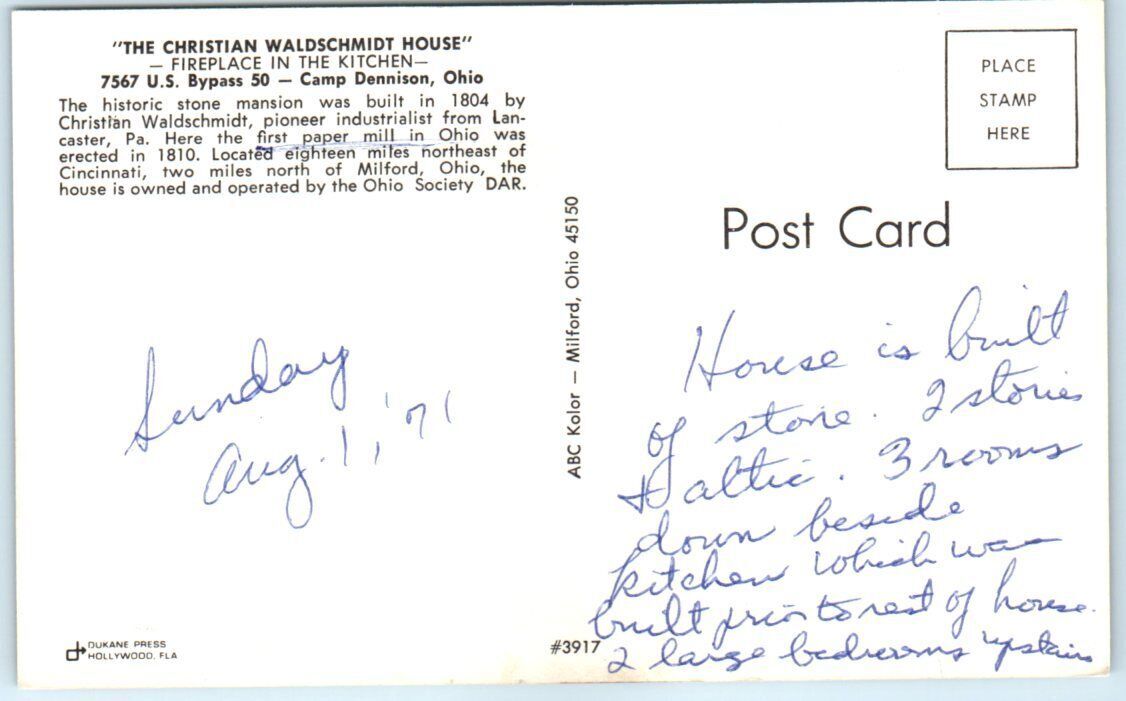 "THE CHRISTIAN WALDSCHMIDT HOUSE"
— FIREPLACE IN THE KITCHEN—
7567 U.S. Bypass 50 — Camp Dennison, Ohio
The historic stone mansion was built in 1804 by
Christian Waldschmidt, pioneer industrialist from Lan-
caster, Pa. Here the first paper mill in Ohio was
erected in 1810. Located eighteen miles northeast of
Cincinnati, two miles north of Milford, Ohio, the
house is owned and operated by the Ohio Society DAR.
Sunday
Aug. 1, '71
DUKANE PRESS
HOLLYWOOD, FLA
ABC Kolor — Milford, Ohio 45150
#3917
PLACE
STAMP
HERE
Post Card
House is built
of stone. 2 stories
+ attic. 3 rooms
down beside
kitchen which was
built prior to rest of house.
2 large bedrooms upstairs